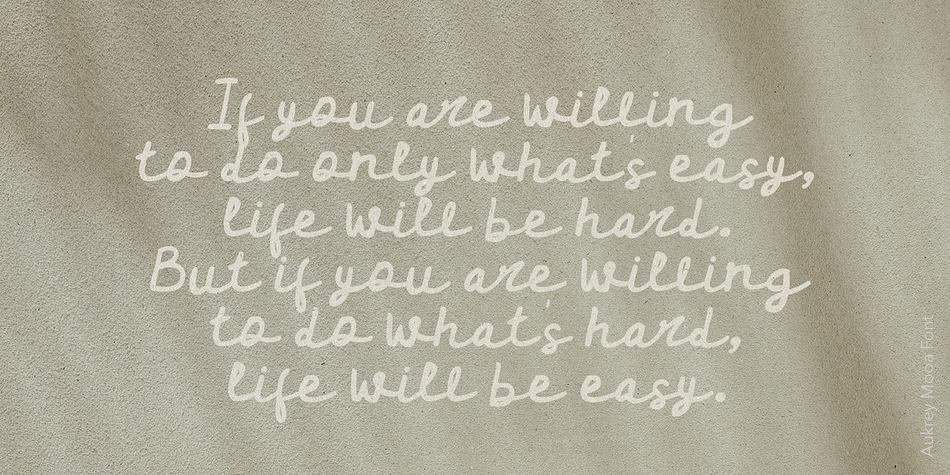 If you are willing
to do only what's easy,
life will be hard.
But if you are willing
to do what's hard,
life will be easy.
Aukrey Mooa Font